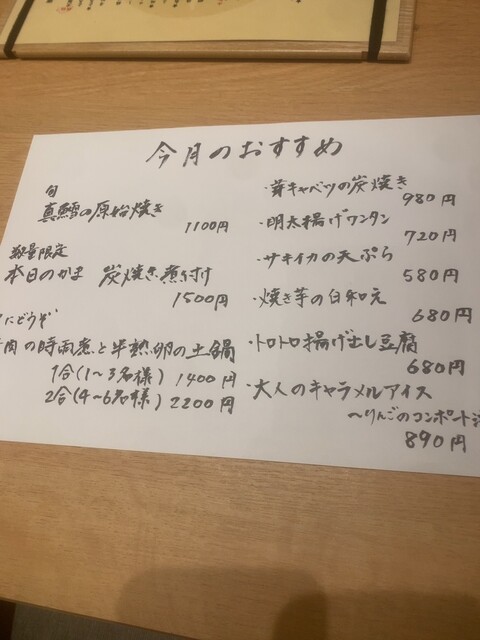 今月のおすすめ
旬
真鱈の原始焼き
1100円
数量限定
本日のかま 炭焼き・煮付け
1500円
にどうぞ
肉の時雨煮と半熟卵の土鍋
1合(1〜3名様) 1400円
2合(4〜6名様) 2200円
・芽キャベツの炭焼き
980円
・明太揚げワンタン
720円
・サキイカの天ぷら
580円
・焼き芋の白和え
680円
・トロトロ揚げ出し豆腐
680円
・大人のキャラメルアイス
〜りんごのコンポート
890円